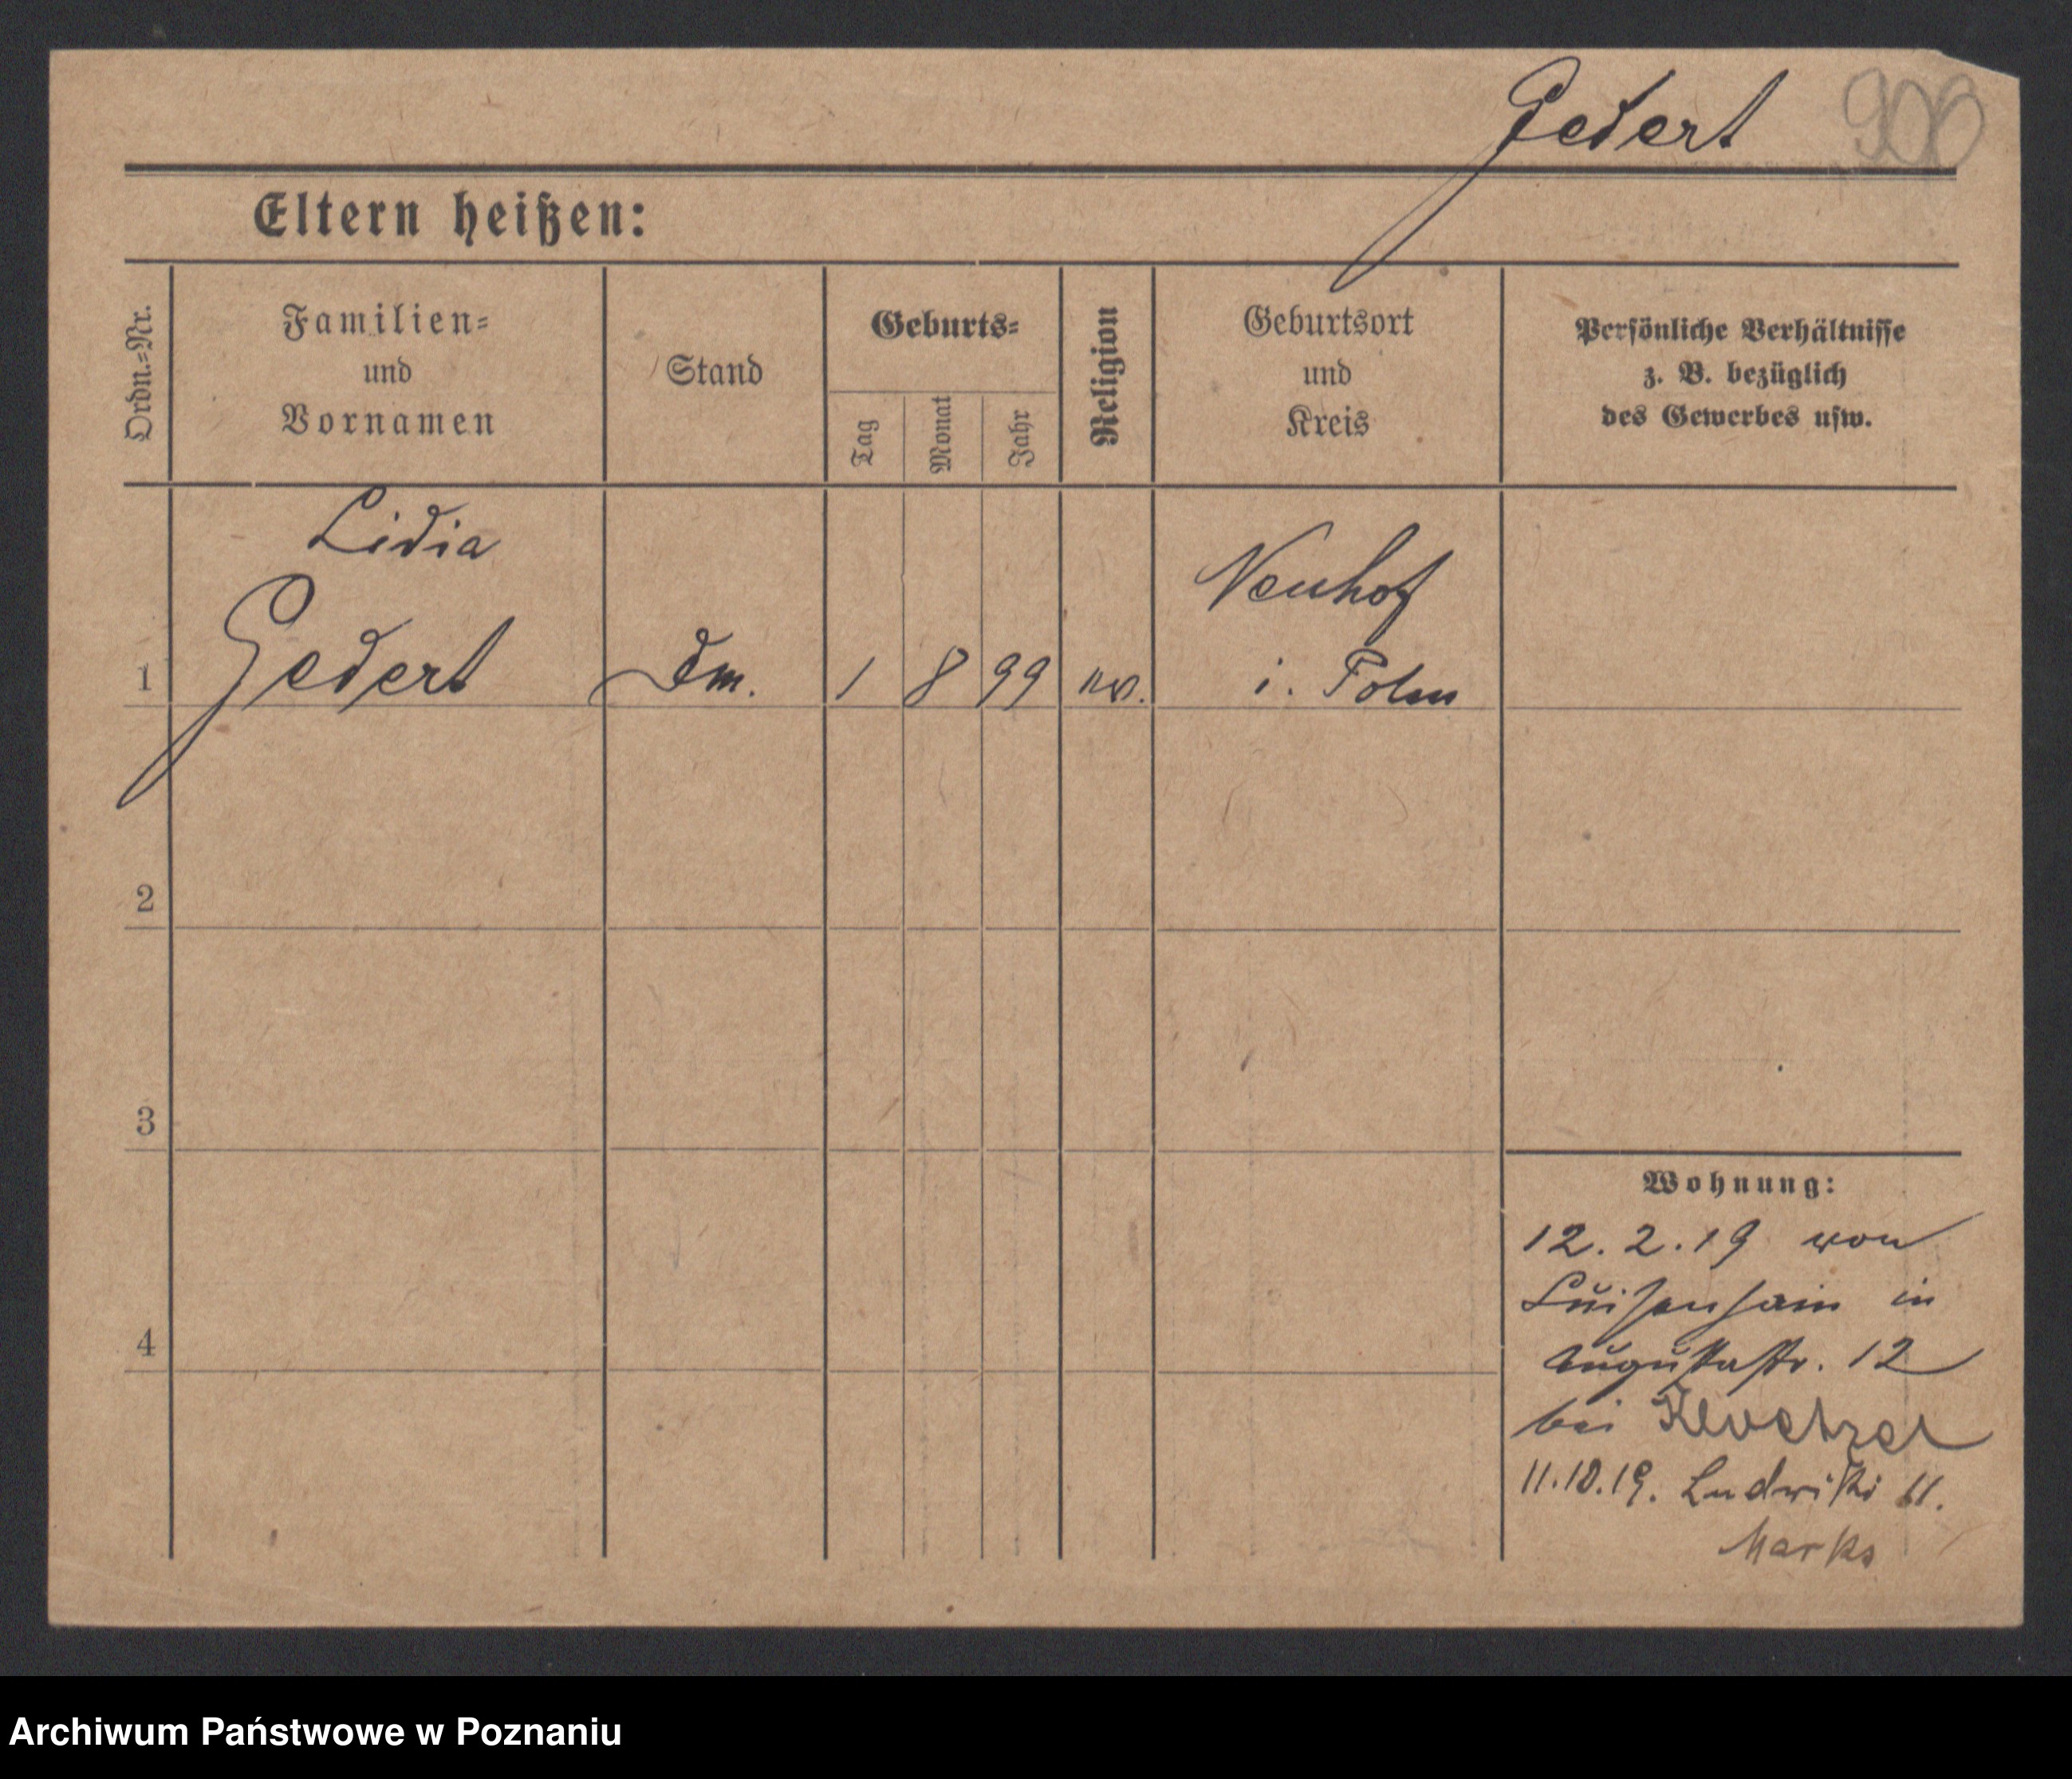 Gedert 900
Eltern heißen:
Ordn.=Nr.
Familien=
und
Vornamen
Stand
Geburts=
Tag
Monat
Jahr
Religion
Geburtsort
und
Kreis
Persönliche Verhältnisse
z. B. bezüglich
des Gewerbes usw.
Lidia
Neuhof
1 Gedert Dm. 1 8 99 ev. i. Polen
2
3
4
Wohnung:
12.2.19 von
Luisenhain in
Augustastr. 12
bei
11.10.19. Ludwiki 11.
Marks
Archiwum Państwowe w Poznaniu